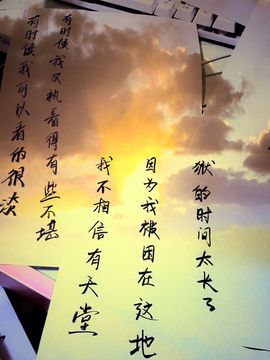 有时候我可以看的很淡
有时候我又执着得有些不堪
我不相信有天堂
因为我被困在这地
狱的时间太长了